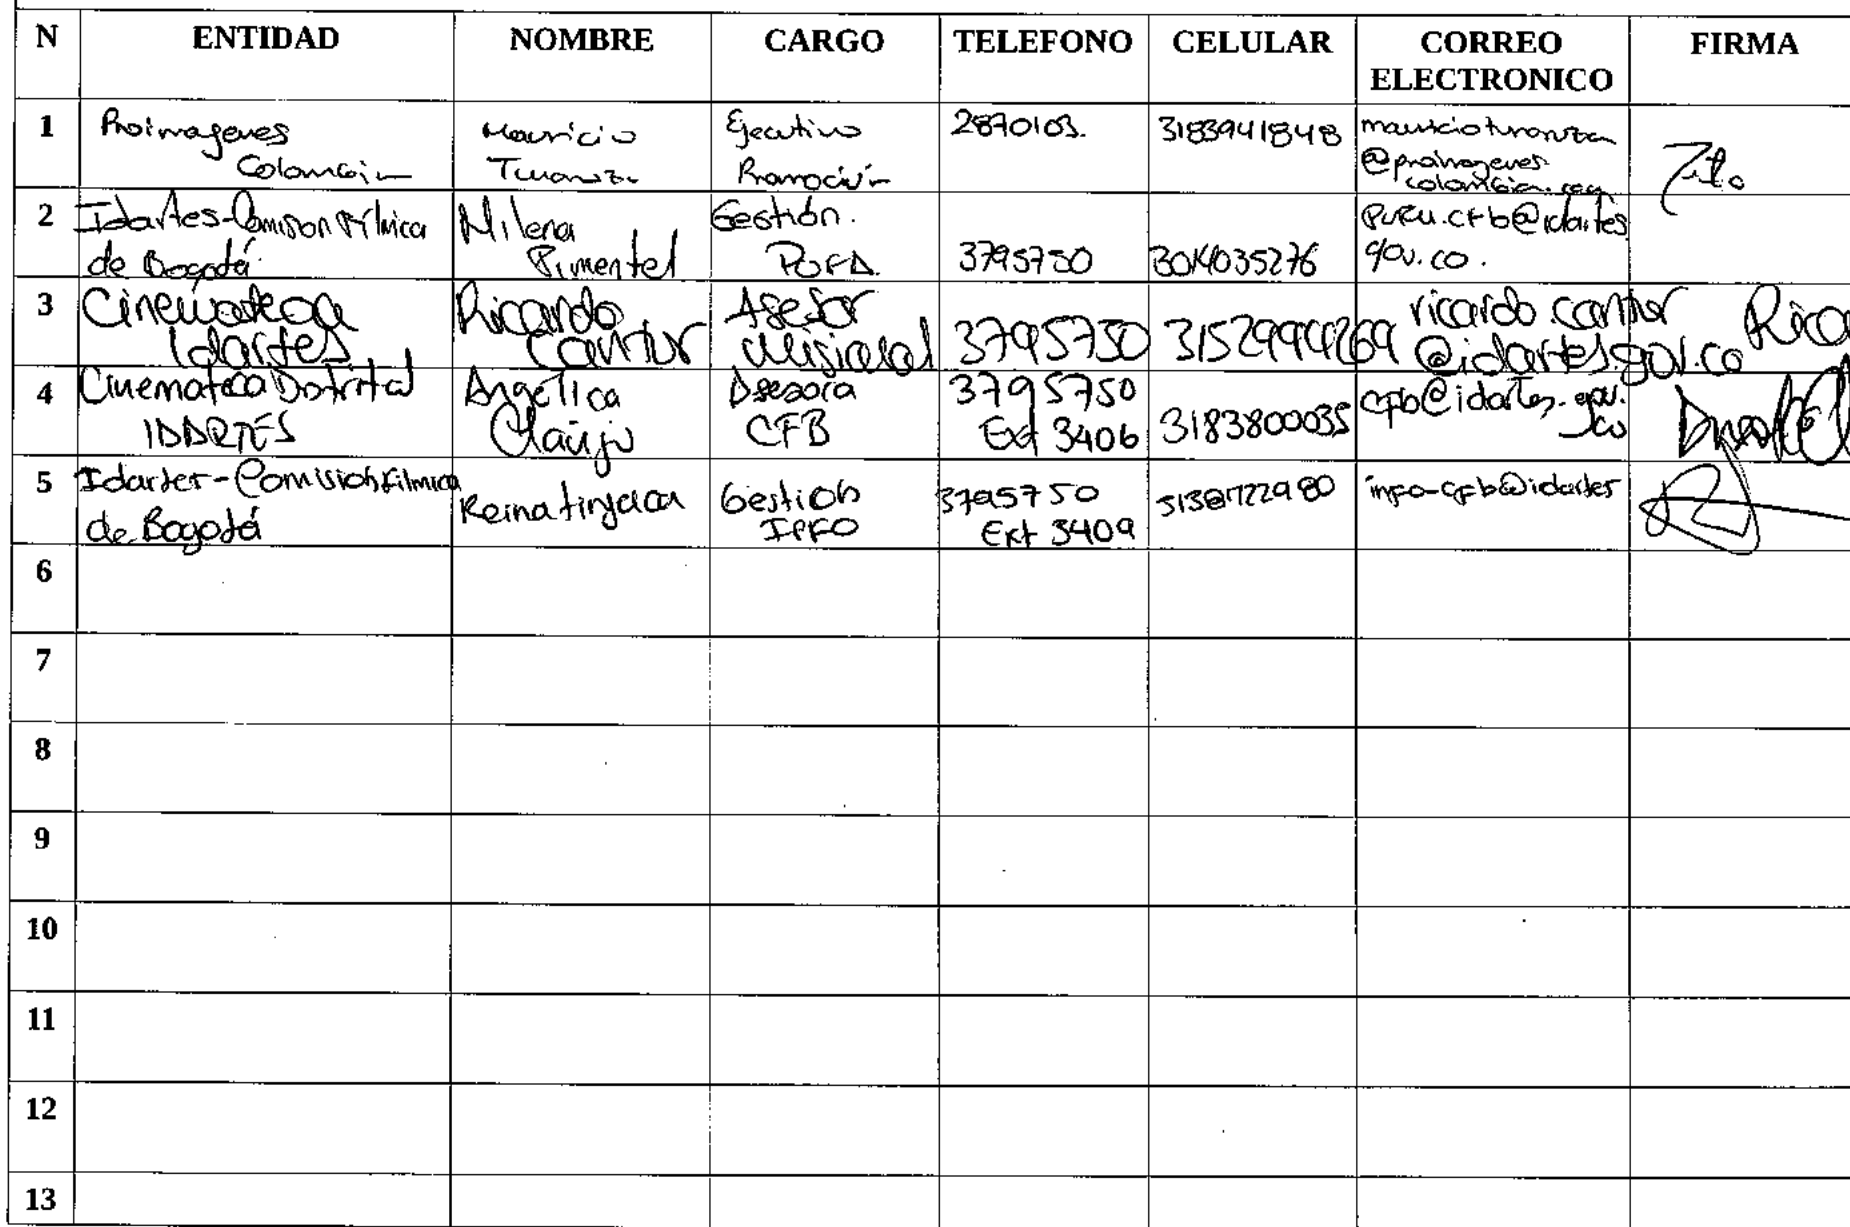 N ENTIDAD NOMBRE CARGO TELEFONO CELULAR CORREO ELECTRONICO FIRMA
1 Proimagenes Colombia Mauricio Ejecutivo Promoción 2870103. 3183941848
2 Idartes-Comision Fílmica de Bogotá Milena Pimentel Gestión. PUFA. 3795750 3014035276 pufa.cfb@idartes gov.co.
3 Cinemateca Idartes Ricardo Cantor Asesor Misional 3795750 ricardo.cantor @idartes.gov.co
4 Cinemateca Distrital IDARTES Angélica Clavijo Asesora CFB 3795750 Ext 3406 3183800035 cfb@idartes.gov.co
5 Idartes-Comisión Filmica de Bogotá Reina tinjaca Gestión 3795750 Ext 3409 info-cfb@idartes
6
7
8
9
10
11
12
13